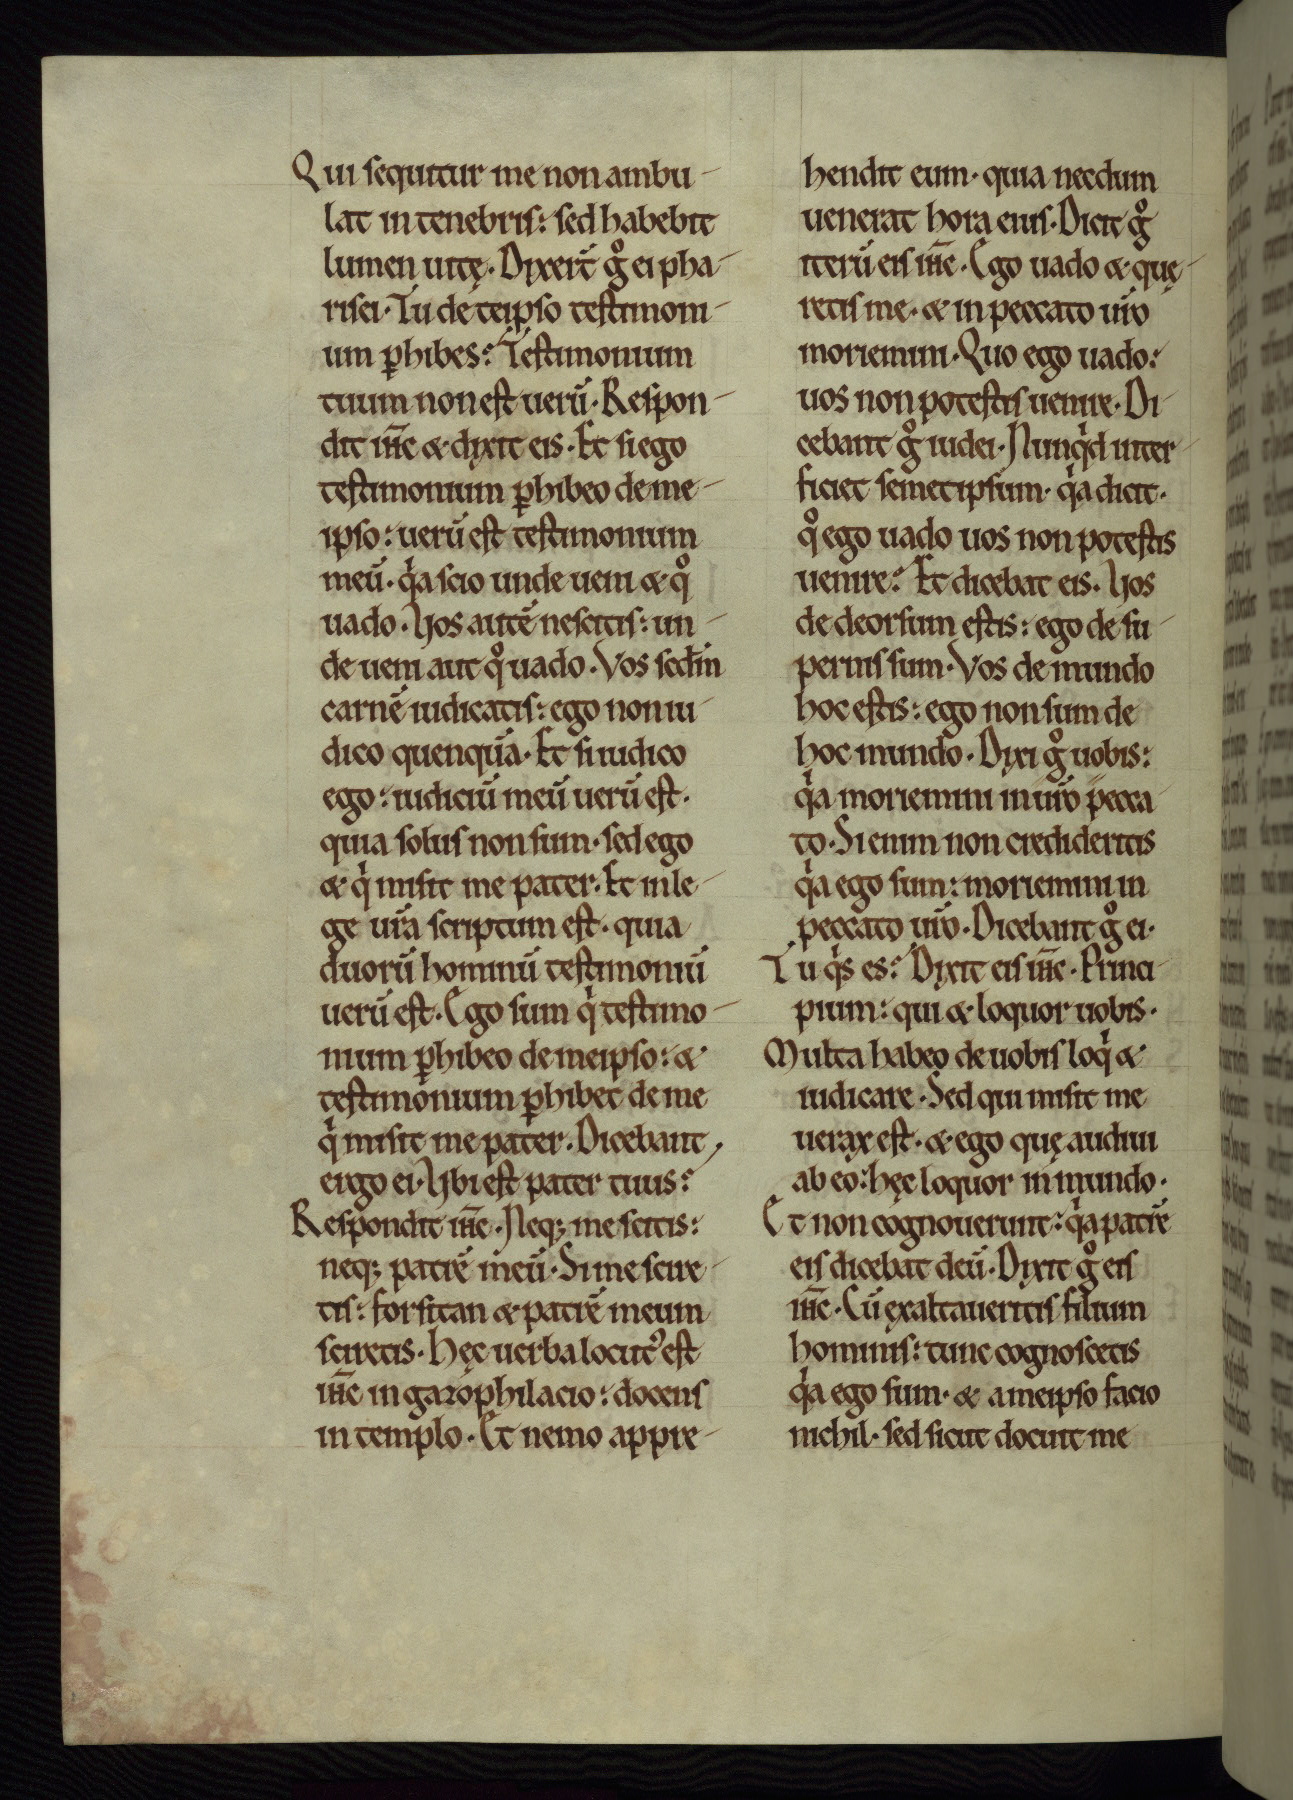 Qui sequitur me non ambu-
lat in tenebris: sed habebit
lumen uitę. Dixer̄t gͦ ei pha-
risei. Tu de teipso testimoni-
um ꝑhibes: Testimonium
tuum non est uerū. Respon-
dit ih̄c & dixit eis. Et si ego
testimonium ꝑhibeo de me-
ipso: uerū est testimonium
meū. qͥa scio unde ueni & qͦ
uado. Uos autē nescitis: un-
de ueni aut qͦ uado. Vos sedm̄
carnē iudicatis: ego non iu-
dico quenquā. Et si iudico
ego: iudiciū meū uerū est.
quia solus non sum. sed ego
& qͥ misit me pater. Et in le-
ge ur̄a scriptum est. quia
duorū hominū testimoniū
uerū est. Ego sum qͥ testimo-
nium ꝑhibeo de meipso: &
testimonium ꝑhibet de me
qͥ misit me pater. Dicebant
ergo ei. Ubi est pater tuus:
Respondit ih̄c. Neq; me scitis:
neq; patrē meū. Si me scire-
tis: forsitan & patrē meum
sciretis. Hęc uerba locutꝰ est
ih̄c in gazophilacio: docens
in templo. Et nemo appre-
hendit eum. quia necdum
uenerat hora eius. Dicit gͦ
iterū eis ih̄c. Ego uado & quę-
retis me. & in peccato ur̄o
moriemini. Quo ego uado:
uos non potestis uenire. Di-
cebant gͦ iudei. Nunqͥd inter-
ficiet semetipsum. qͥa dicit.
qͦ ego uado uos non potestis
uenire: Et dicebat eis. Uos
de deorsum estis: ego de su-
pernis sum. Vos de mundo
hoc estis: ego non sum de
hoc mundo. Dixi gͦ uobis:
qͥa moriemini in ur̄o pecca-
to. Si enim non credideritis
qͥa ego sum: moriemini in
peccato ur̄o. Dicebant gͦ ei.
Tu qͥs es: Dixit eis ih̄c. Princi-
pium: qui & loquor uobis.
Multa habeo de uobis loqͥ &
iudicare. Sed qui misit me
uerax est. & ego quę audiui
ab eo: hęc loquor in mundo.
Et non cognouerunt: qͥa patrē
eis dicebat deū. Dixit gͦ eis
ih̄c. Cū exaltaueritis filium
hominis: tunc cognoscetis
qͥa ego sum. & a meipso facio
nichil. sed sicut docuit me